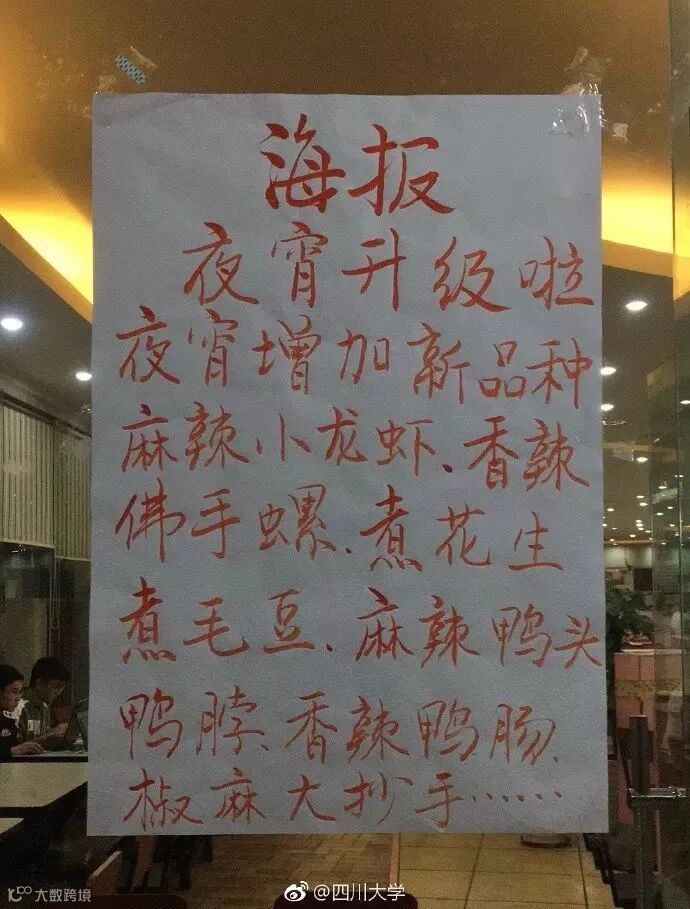 海报
夜宵升级啦
夜宵增加新品种
麻辣小龙虾、香辣
佛手螺、煮花生
煮毛豆、麻辣鸭头
鸭脖、香辣鸭肠、
椒麻大抄手……
@四川大学
大数跨境